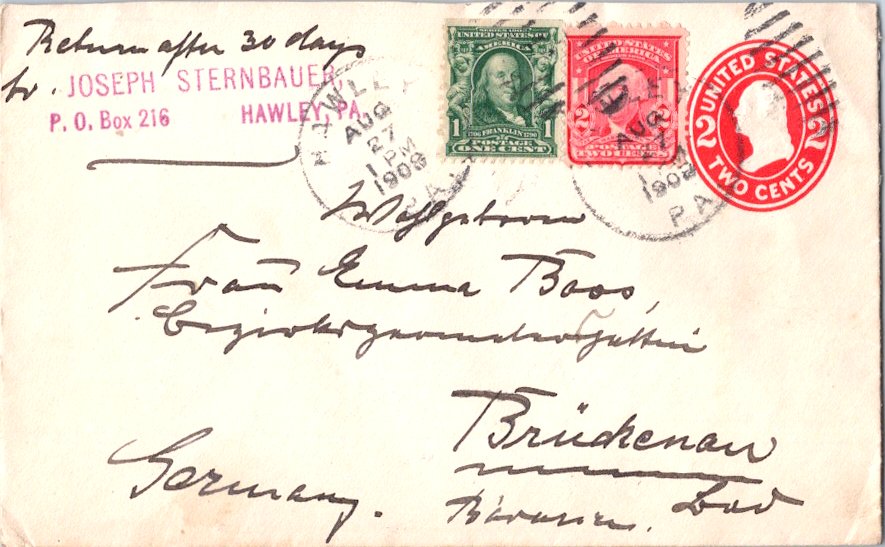 Return after 30 days
to. JOSEPH STERNBAUER,
P. O. Box 216 HAWLEY, PA.
HAWLEY
AUG
27
1 PM
1908
PA.
SERIES 1902
UNITED STATES OF
AMERICA
1 1790 FRANKLIN 1790 1
POSTAGE
ONE CENT
UNITED STATES
OF AMERICA
2
POSTAGE
TWO CENTS
AUG
27
190
PA.
UNITED STATES
2 2
TWO CENTS
Wohlgeboren
Frau Emma Boos,
Brückenau
Bad
Germany. Bavaria.